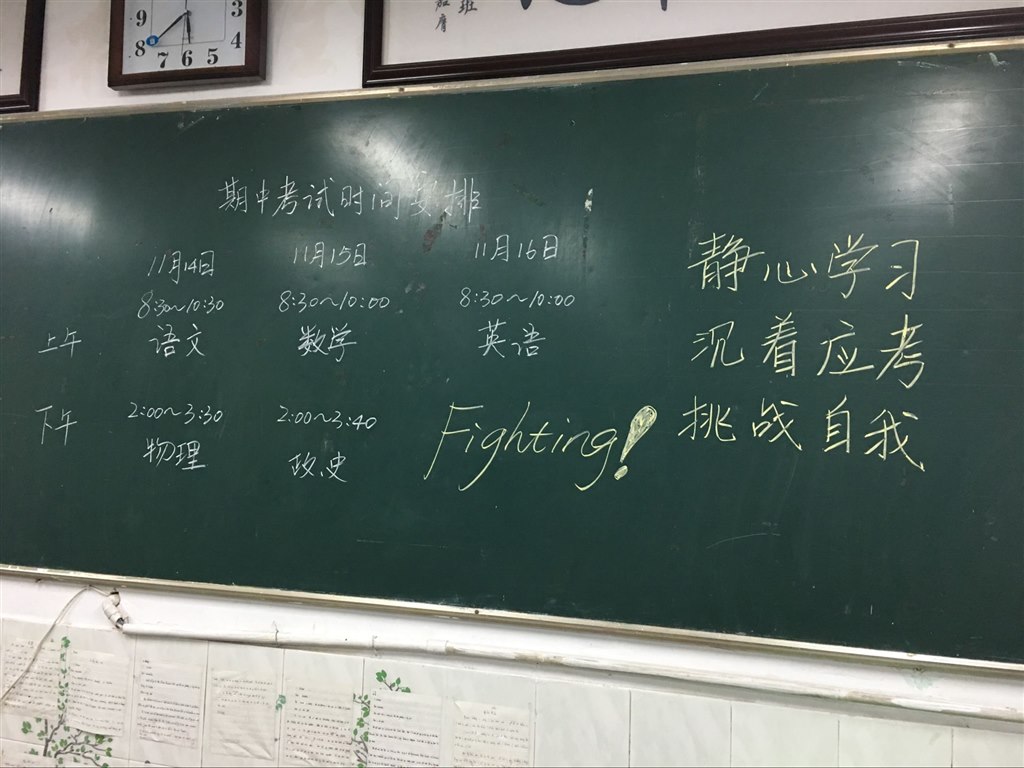 9 3
8 4
7 6 5
班
期中考试时间安排
11月14日 11月15日 11月16日
8:30~10:30 8:30~10:00 8:30~10:00
上午 语文 数学 英语
下午 2:00~3:30 2:00~3:40
物理 政、史
Fighting!
静心学习
沉着应考
挑战自我